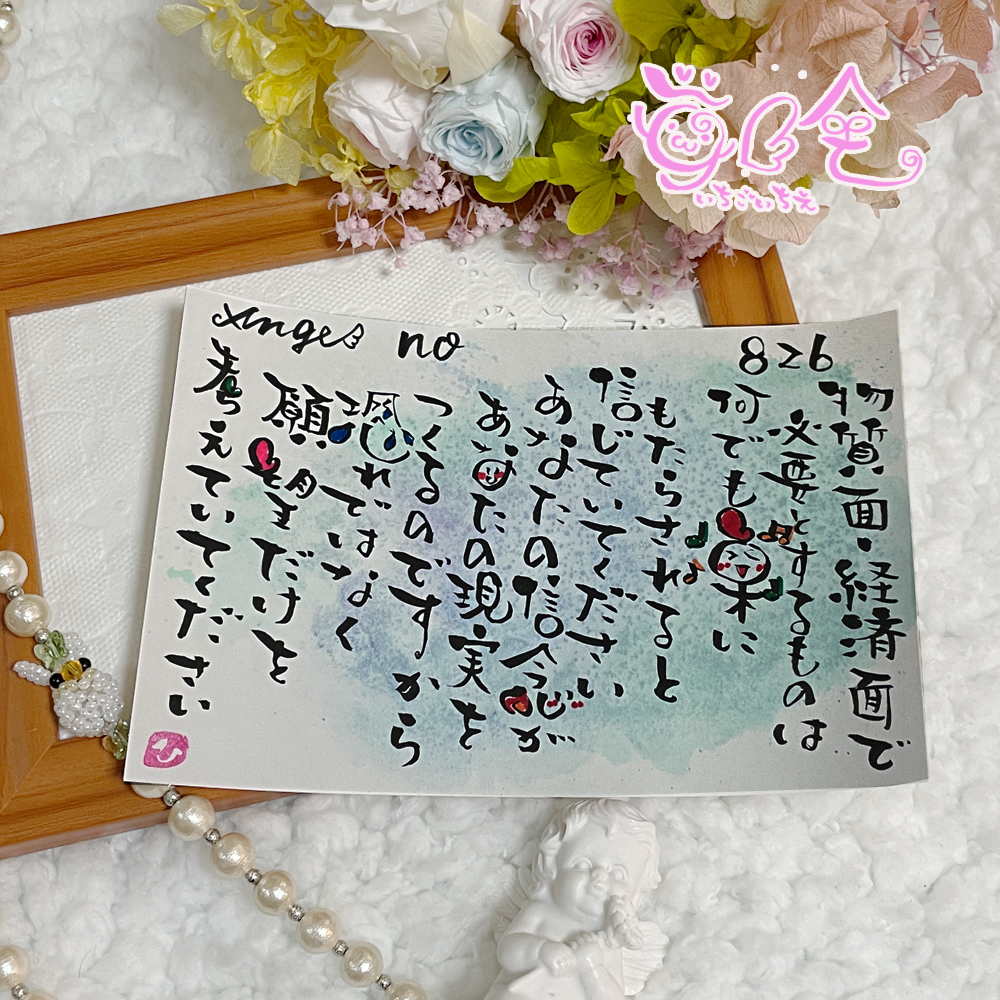 いちごいちえ
Angel no 826
物質面・経済面で
必要とするものは
何でも楽に
もたらされると
信じていてください
あなたの信念が
あなたの現実を
つくるのですから
恐れではなく
願望だけを
考えていてください